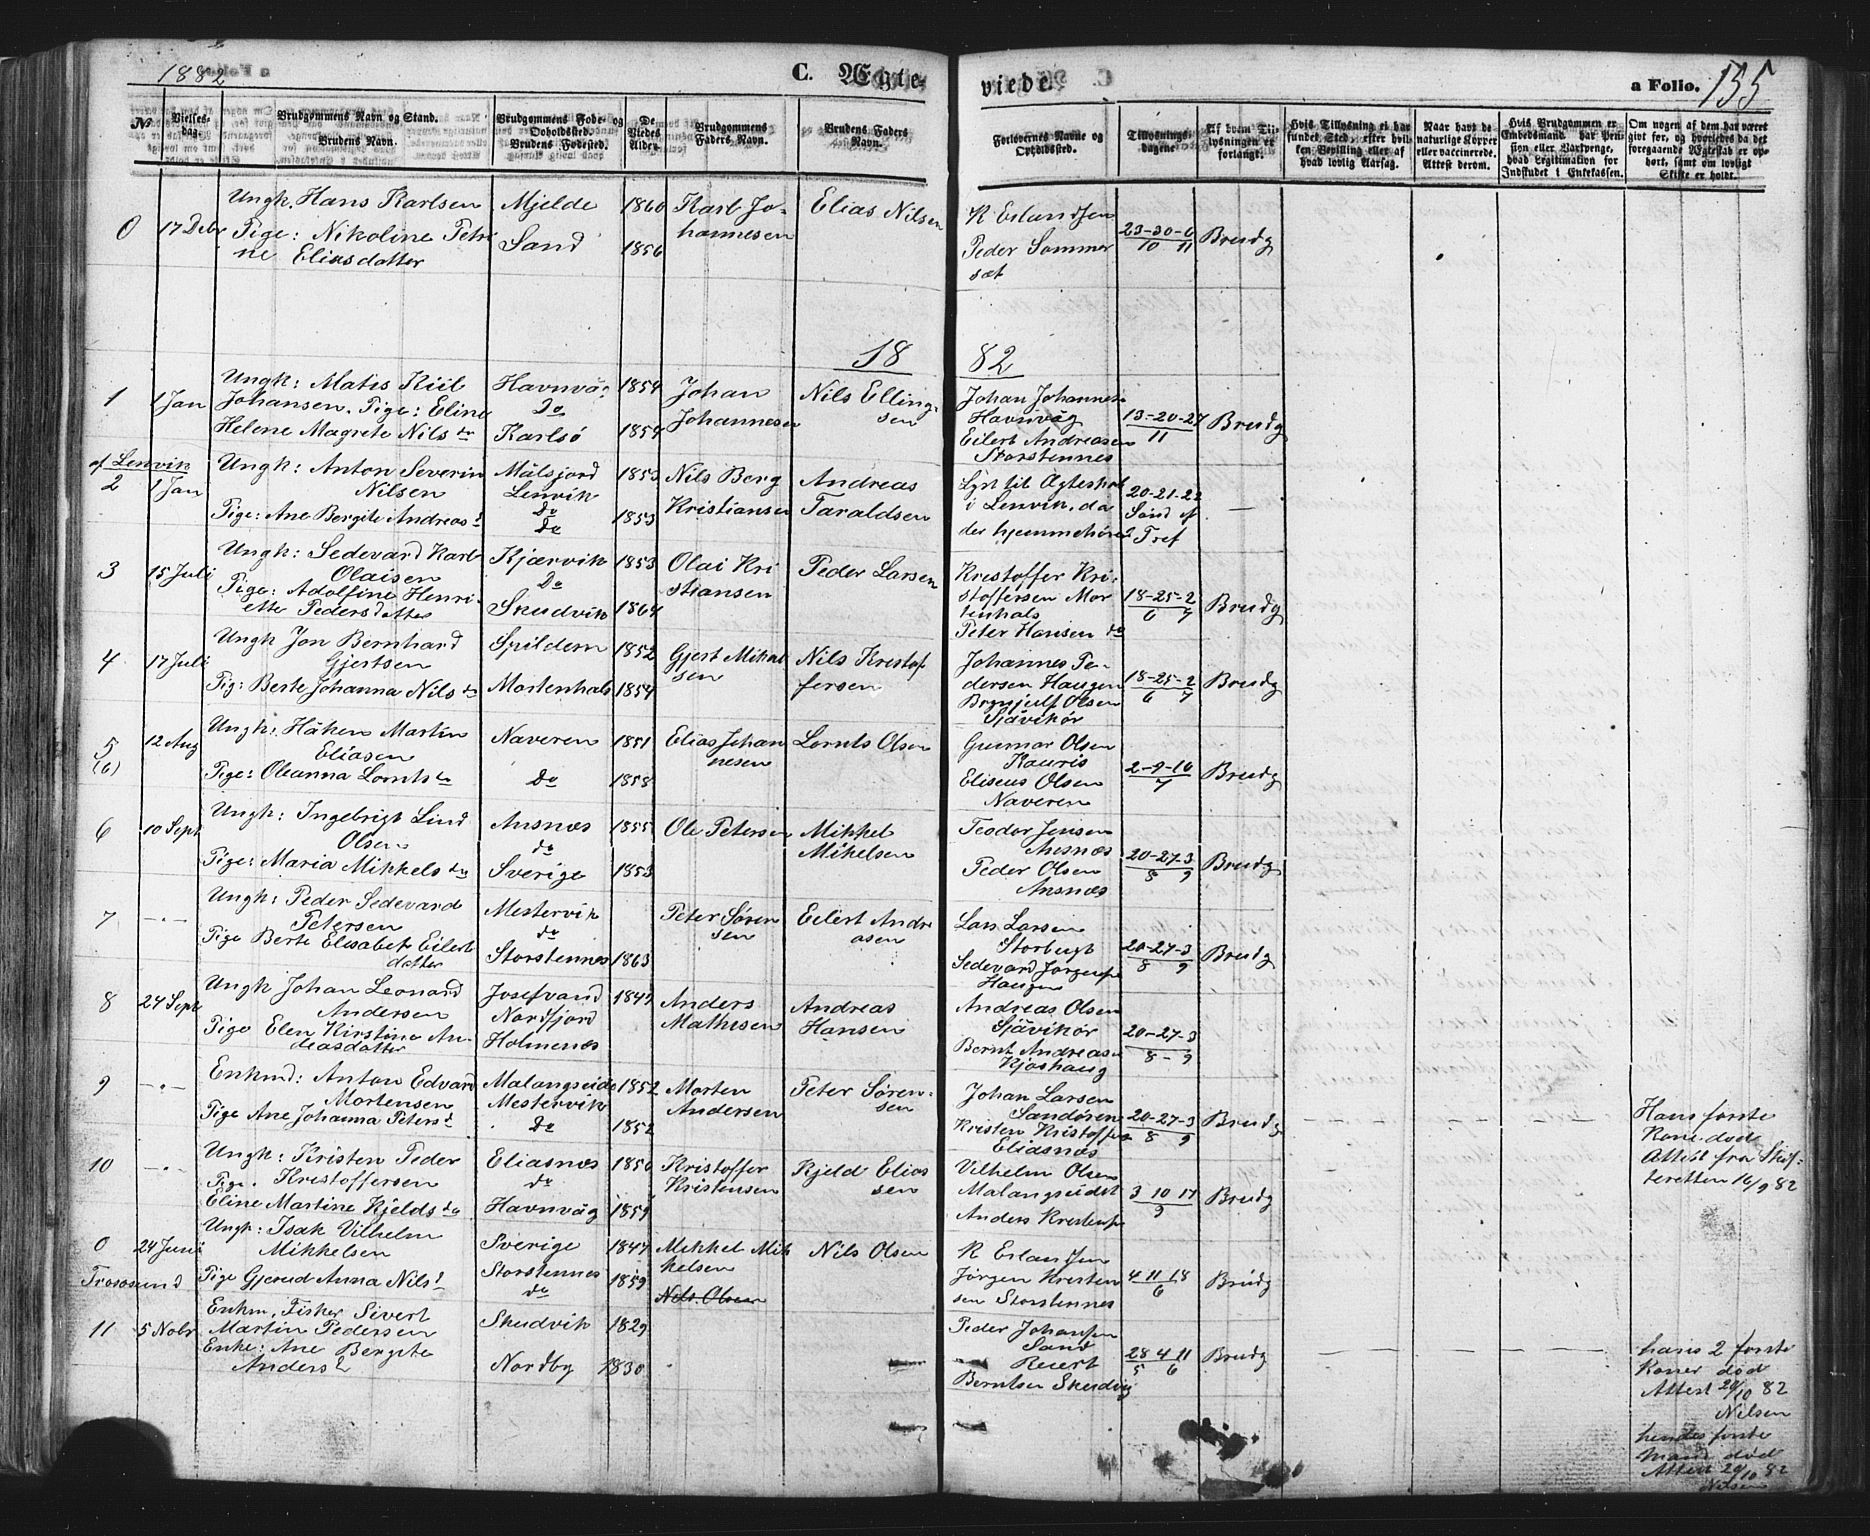 1882
C. Ægte
viede.
a Folio. 155
No
Vielses-
dag.
Brudgommens Navn og Stand.
Brudens Navn.
Brudgommens Føde- og
Opholdssted.
Brudens Fødested.
De
Viedes
Alder.
Brudgommens
Faders Navn.
Brudens Faders
Navn.
Forlovernes Navne og
Opholdssted.
Tillysnings-
dagene
Af hvem Til-
lysningen er
forlangt.
Hvis Tillysning ei har
fundet Sted, efter hvil-
ken Bevilling eller af
hvad lovlig Aarsag.
Naar havt de
naturlige Kopper
eller vaccinerede.
Attest derom.
Hvis Brudgommen er
Embedsmand har Pen-
sion eller Vartpenge,
hvad Legitimation for
Indskudet i Enkekassen.
Om nogen af dem har været
givt før, og hvorledes da det
foregaaende Ægteskab er op-
hørt, samt om lovligt
Skifte er holdt.
0 17 Debr
Ungk. Hans Karlsen
Pige: Nikoline Petri
ne Eliasdatter
Mjelde
Sand
1860
1856
Karl Jo-
hannesen
Elias Nilsen
K Erlandsen
Peder Sommer
sæt
23-30-6
10 11
Brudg
18 82
1 1 Jan
Ungk: Matis Kiil
Johansen. Pige: Eline
Helene Magrete Nils da
Havnvåg
Do
Karlsö
1854
1854
Johan
Johannesen
Nils Elling-
sen
Johan Johannes
Havnvåg
Eilert Andreasen
Storstennes
13-20-27
11
Brudg
af Lenvik
2 1 Jan
Ungk: Anton Severin
Nilsen
Pige: Ane Bergite Andreas d
Målsjord
Lenvik
Do
Do
1853
1853
Nils Berg
Kristiansen
Andreas
Taraldsen
Lyst til Ægteskab
i Lenvik, da
der hjemmehører
20-21-22
Sönd ef
Tref
—
3 15 Juli
Ungk: Sedevard Karl
Olaisen
Pige: Adolfine Henri-
ette Pedersdatter
Kjærvik
Do
Skudvik
1853
1864
Olai Kri
stiansen
Peder Larsen
Krestoffer Kri-
stoffersen Mor
tenhals
Peter Hansen do
18-25-2
6 7
Brudg
4 17 Juli
Ungk Jon Bernhard
Gjertsen
Pig: Berte Johanna Nils da
Spildern
Mortenhals
1852
1854
Gjert Mikal
sen
Nils Kristof
fersen
Johannes Pe-
dersen Haugen
Brynjulf Olsen
Sjåvikör
18-25-2
6 7
Brudg
5 12 Aug
(6)
Ungk: Håken Martin
Eliasen
Pige: Oleanna Lornts da
Naveren
Do
1851
1858
Elias Johan
nesen
Lornts Olsen
Gunnar Olsen
Kauris
Eliseus Olsen
Naveren
2-9-16
7
Brudg
6 10 Sept
Ungk: Ingebrigt Lind
Olsen
Pige: Maria Mikkels da
Ansnæs
do
Sverige
1855
1853
Ole Petersen
Mikkel
Mikelsen
Teodor Jensen
Ansnæs
Peder Olsen
Ansnæs
20-27-3
8 9
Brudg
7 -.-
Ungk: Peder Sedevard
Petersen
Pige Berte Elisabet Eilert
datter
Mestervik
do
Storstennes
1863
Peter Sören
sen
Eilert Andre
asen
Lars Larsen
Storbugt
Sedevard Jörgensen
Haugen
20-27-3
8 9
Brudg
8 24 Sept
Ungk Johan Leonard
Andersen
Pige Elen Kirstine An-
dreasdatter
Josefvand
Nordfjord
Holmenæs
1849
Anders
Mathesen
Andreas
Hansen
Andreas Olsen
Sjåvikör
Bernt Andreasen
Kjoshaug
20-27-3
8-9
9 -.-
Enkmd: Anton Edvard
Mortensen
Pige Ane Johanna Peters d
Malangseide
Mestervik
Do
1852
1852
Morten
Andersen
Peter Sören-
sen
Johan Larsen
Sandören
Kristen Kristoffers
Eliasnæs
20-27-3
8 9
Brudg
Hans forste
Kone död
Attest fra Skif-
teretten 16/9 82
10 -.-
Ungk: Kristen Peder
Kristoffersen
Pige.
Eline Martine Kjelds da
Eliasnæs
do
Havnvåg
1856
1859
Kristoffer
Kristensen
Kjeld Elias
sen
Vilhelm Olsen
Malangseidet
Anders Krestensen
3 10 17
9
Brudg
0 24 Juni
Tromsösund
Ungk: Isak Vilhelm
Mikkelsen
Pige Gjerud Anna Nils d
Sverige
Storstennes
do
1847
1859
Mikkel Mik
kelsen
Nils Olsen
Nils Olsen
K Erlandsen
Jörgen Kresten
sen Storstennes
4 11 18
6
Brudg
11 5 Nobr
Enkm. Fisker Sivert
Martin Pedersen
Enke: Ane Bergete
Anders d
Skudvik
Nordby
1829
1830
Peder Johansen
Sand
Reiert
Berntsen Skudvig
28 4 11
5 6
Brudg
hans 2 forste
Koner död
Attest 29/10 82
Nilsen
hendes forste
mand död
Attest 29/10 82
Nilsen